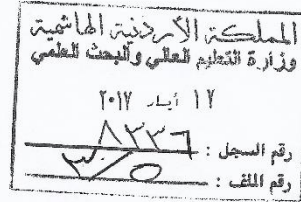 المملكة الأردنية الهاشمية
وزارة التعليم العالي والبحث العلمي
١٧ أيار ٢٠١٧
رقم السجل : ٨٣٣٦
رقم الملف : ٥/٣٠